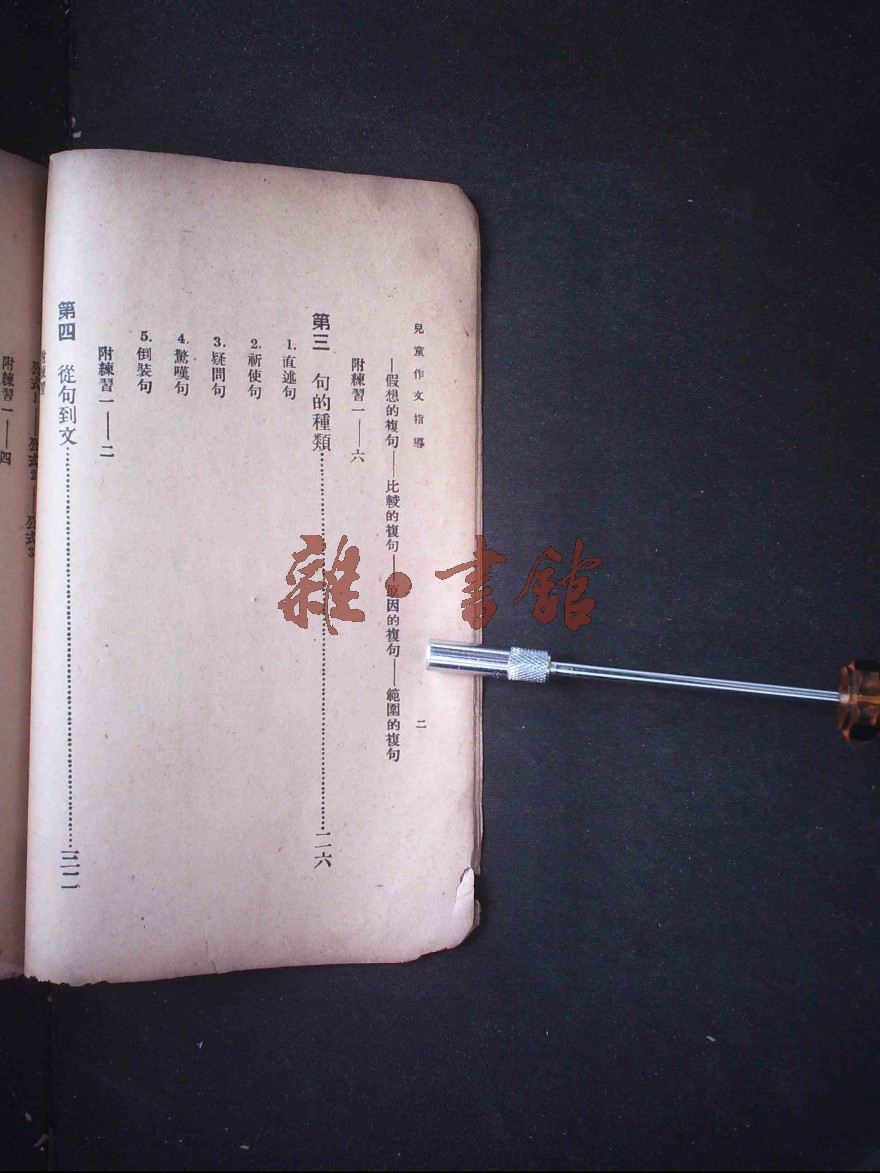 兒童作文指導
二
—假想的複句——比較的複句——原因的複句——範圍的複句
附練習一——六
第三 句的種類……二六
1. 直述句
2. 祈使句
3. 疑問句
4. 驚嘆句
5. 倒裝句
附練習一——二
第四 從句到文……三二
附練習一——四
雜·書館